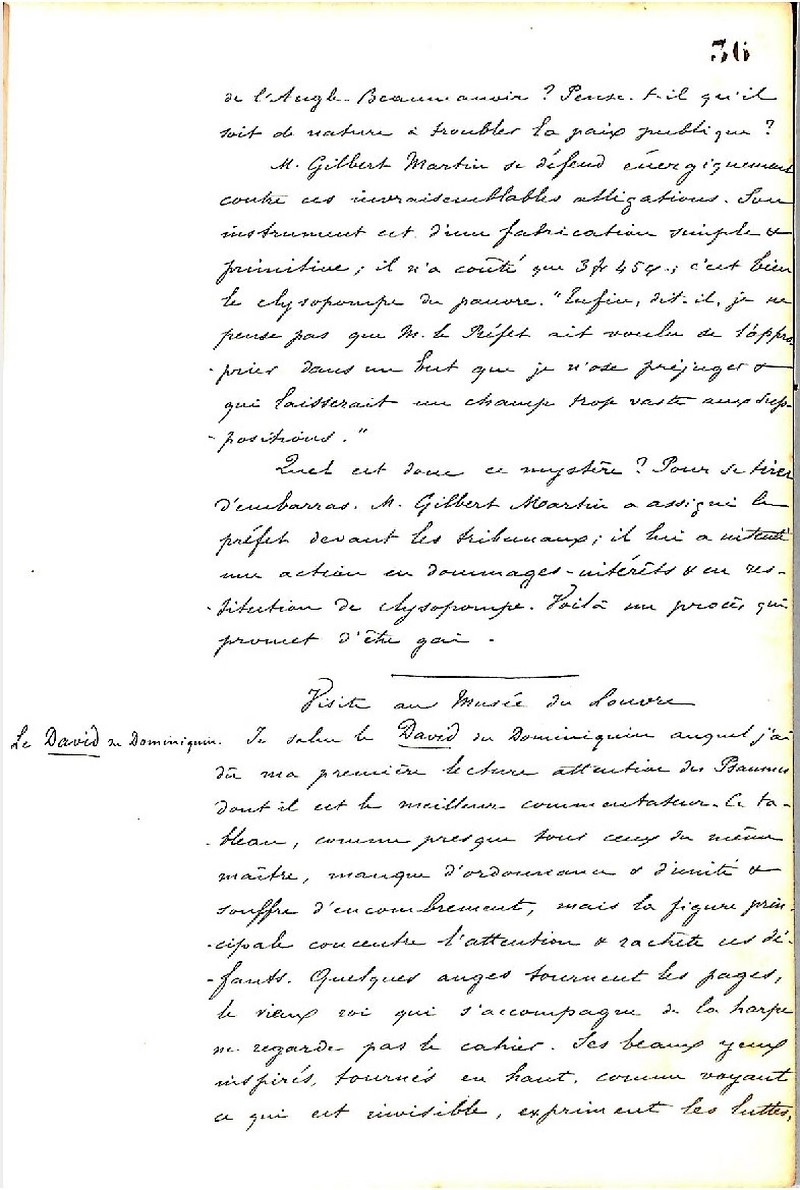 36
de l'Angle-Beaumanoir ? Pense-t-il qu'il
soit de nature à troubler la paix publique ?
M. Gilbert Martin se défend énergiquement
contre ces invraisemblables allégations. Son
instrument est d'une fabrication simple &
primitive ; il n'a coûté que 3 fr 45 c. ; c'est bien
le clysopompe du pauvre. "Enfin, dit-il, je ne
pense pas que M. le Préfet ait voulu se l'appro-
-prier dans un but que je n'ose préjuger &
qui laisserait un champ trop vaste aux sup-
-positions."
Quel est donc ce mystère ? Pour se tirer
d'embarras, M. Gilbert Martin a assigné le
préfet devant les tribunaux ; il lui a intenté
une action en dommages-intérêts & en res-
-titution de clysopompe. Voilà un procès qui
promet d'être gai.
Visite au Musée du Louvre
Le David du Dominiquin.
Je salue le David du Dominiquin auquel j'ai
dû ma première lecture attentive des Psaumes
dont il est le meilleur commentateur. Ce ta-
-bleau, comme presque tous ceux du même
maître, manque d'ordonnance & d'unité &
souffre d'encombrement, mais la figure prin-
-cipale concentre l'attention & rachète ces dé-
-fauts. Quelques anges tournent les pages,
le vieux roi qui s'accompagne de la harpe
ne regarde pas le cahier. Ses beaux yeux
inspirés, tournés en haut, comme voyant
ce qui est invisible, expriment les luttes,